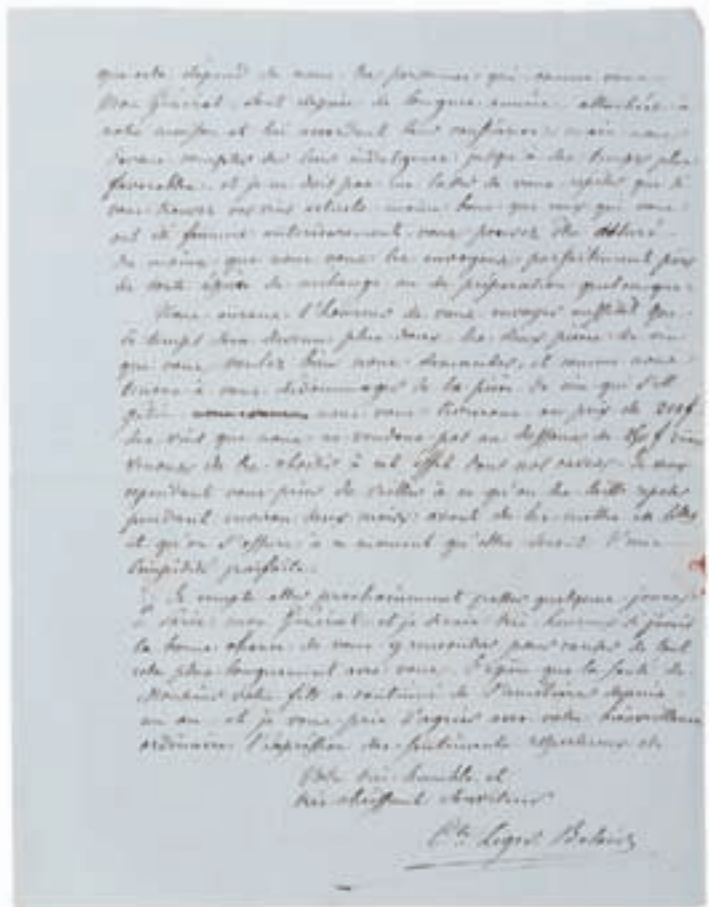 que cela dépend de nous. Les personnes qui comme vous
Mon Général, sont depuis de longues années attachées à
notre maison et lui accordent leur confiance
compter sur leur indulgence jusqu'à des temps plus
favorables et je ne dois pas me lasser de vous répéter que si
vous trouvez vos vins actuels moins bons que ceux qui vous
ont été fournis antérieurement vous pouvez être assuré
du moins que nous vous les envoyons parfaitement purs
de toute espèce de mélange ou de préparation quelconque.
Nous aurons l'honneur de vous envoyer aussitôt que
le temps sera devenu plus doux les deux pièces de vin
que vous voulez bien nous demander, et comme nous
tenons à vous dédommager de la pièce de vin qui s'est
gâtée nous vous au prix de 200f
des vins que nous ne vendons pas au dessous de
de les choisir à cet effet dans nos caves. Je veux
cependant vous prier de veiller à ce qu'on les laisse reposer
pendant environ deux mois avant de les mettre en
et qu'on s'assure à ce moment qu'elles sont d'une
limpidité parfaite.
Je compte aller prochainement passer quelques jours
à Paris mon Général et je serais très heureux si j'avais
la bonne chance de vous y rencontrer pour causer de tout
cela plus longuement avec vous. J'espère que la santé de
Monsieur votre fils a continué de s'améliorer depuis
un an et je vous prie d'agréer avec votre bienveillance
ordinaire l'expression des sentiments respectueux de
Votre très humble et
très obéissant serviteur
Cte Liger Belair